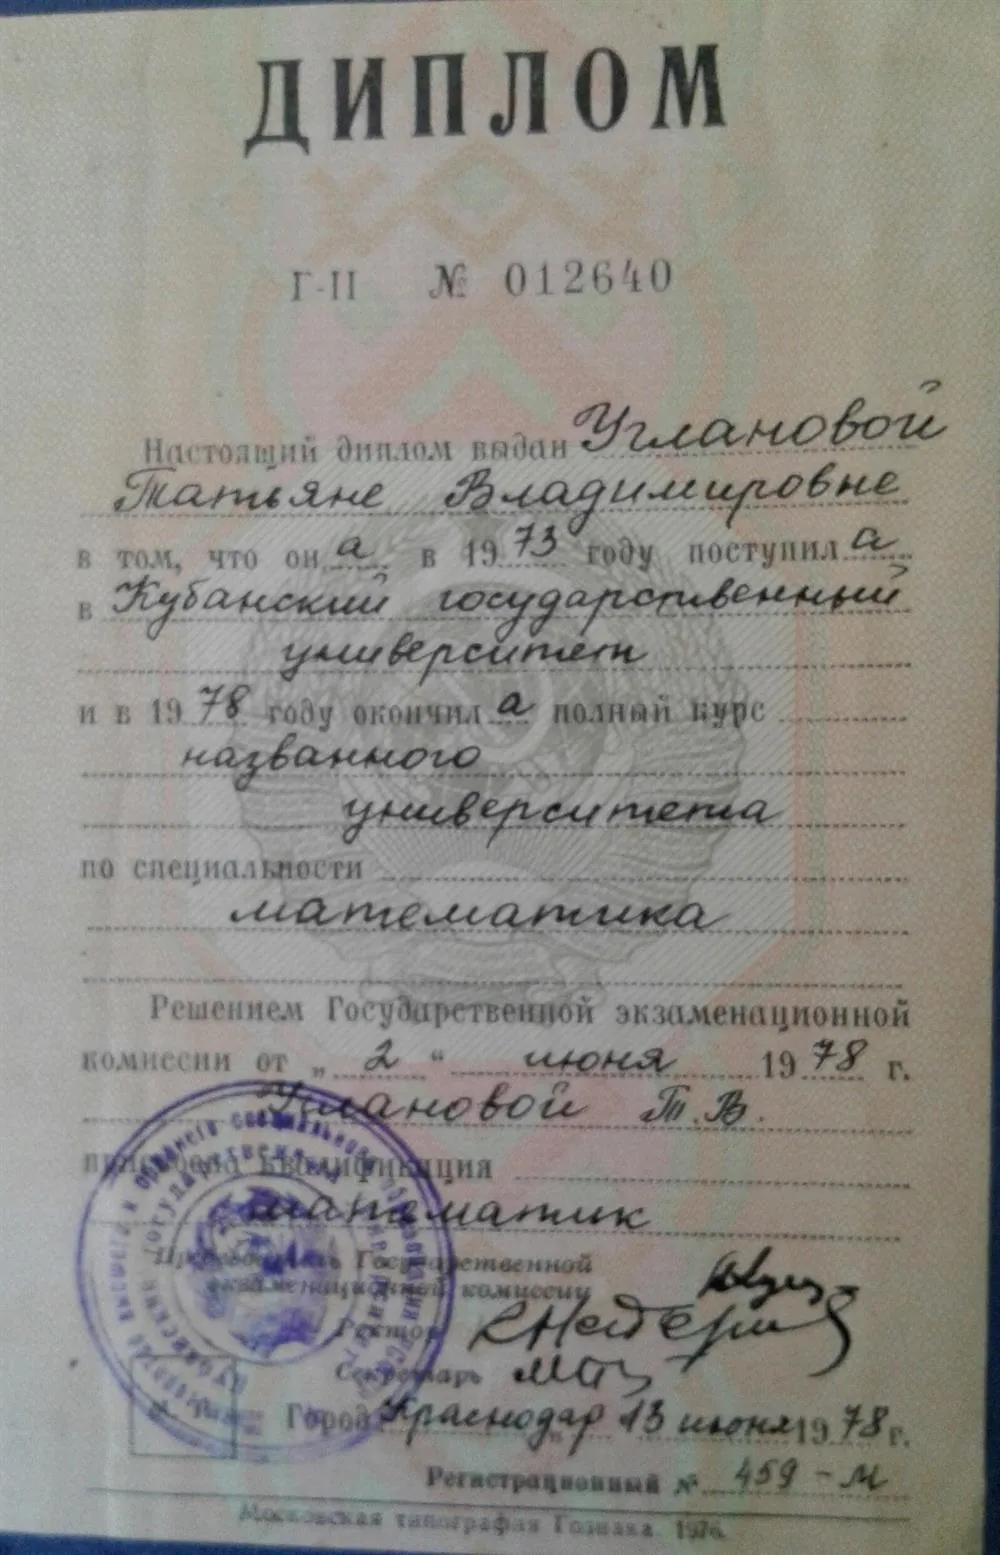 ДИПЛОМ
Г-II № 012640
Настоящий диплом выдан Углановой
Татьяне Владимировне
в том, что он а в 1973 году поступил а
в Кубанский государственный
университет
и в 1978 году окончил а полный курс
названного
университета
по специальности
математика
Решением Государственной экзаменационной
комиссии от „ 2 “ июня 1978 г.
Углановой Т.В.
присвоена квалификация
математик
Председатель Государственной
экзаменационной комиссии
Ректор
Секретарь
Город Краснодар 13 июня 1978 г.
Регистрационный № 459-м
Московская типография Гознака. 1976.